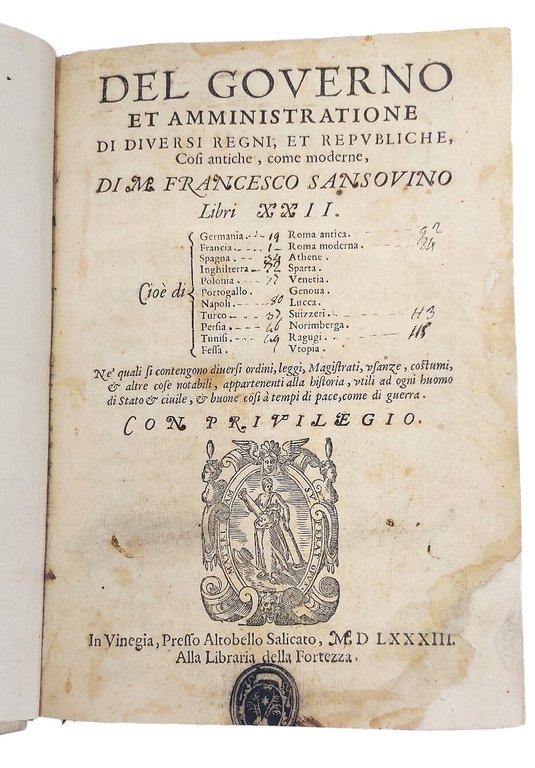 DEL GOVERNO
ET AMMINISTRATIONE
DI DIVERSI REGNI, ET REPVBLICHE,
Cosi antiche, come moderne,
DI M. FRANCESCO SANSOVINO
Libri XXII.
Cioè di
Germania. 19 Roma antica. 92
Francia. 1 Roma moderna. 94
Spagna 34 Athene.
Inghilterra 72 Sparta.
Polonia 77 Venetia.
Portogallo. Genoua.
Napoli. 80 Lucca.
Turco 37 Suizzeri. 113
Persia 46 Norimberga.
Tunisi 49 Ragugi 118
Fessa. Vtopia.
Ne' quali si contengono diuersi ordini, leggi, Magistrati, vsanze, costumi,
& altre cose notabili, appartenenti alla historia, vtili ad ogni huomo
di Stato & ciuile, & buone cosi à tempi di pace, come di guerra.
CON PRIVILEGIO.
In Vinegia, Presso Altobello Salicato, M D LXXXIII.
Alla Libraria della Fortezza.